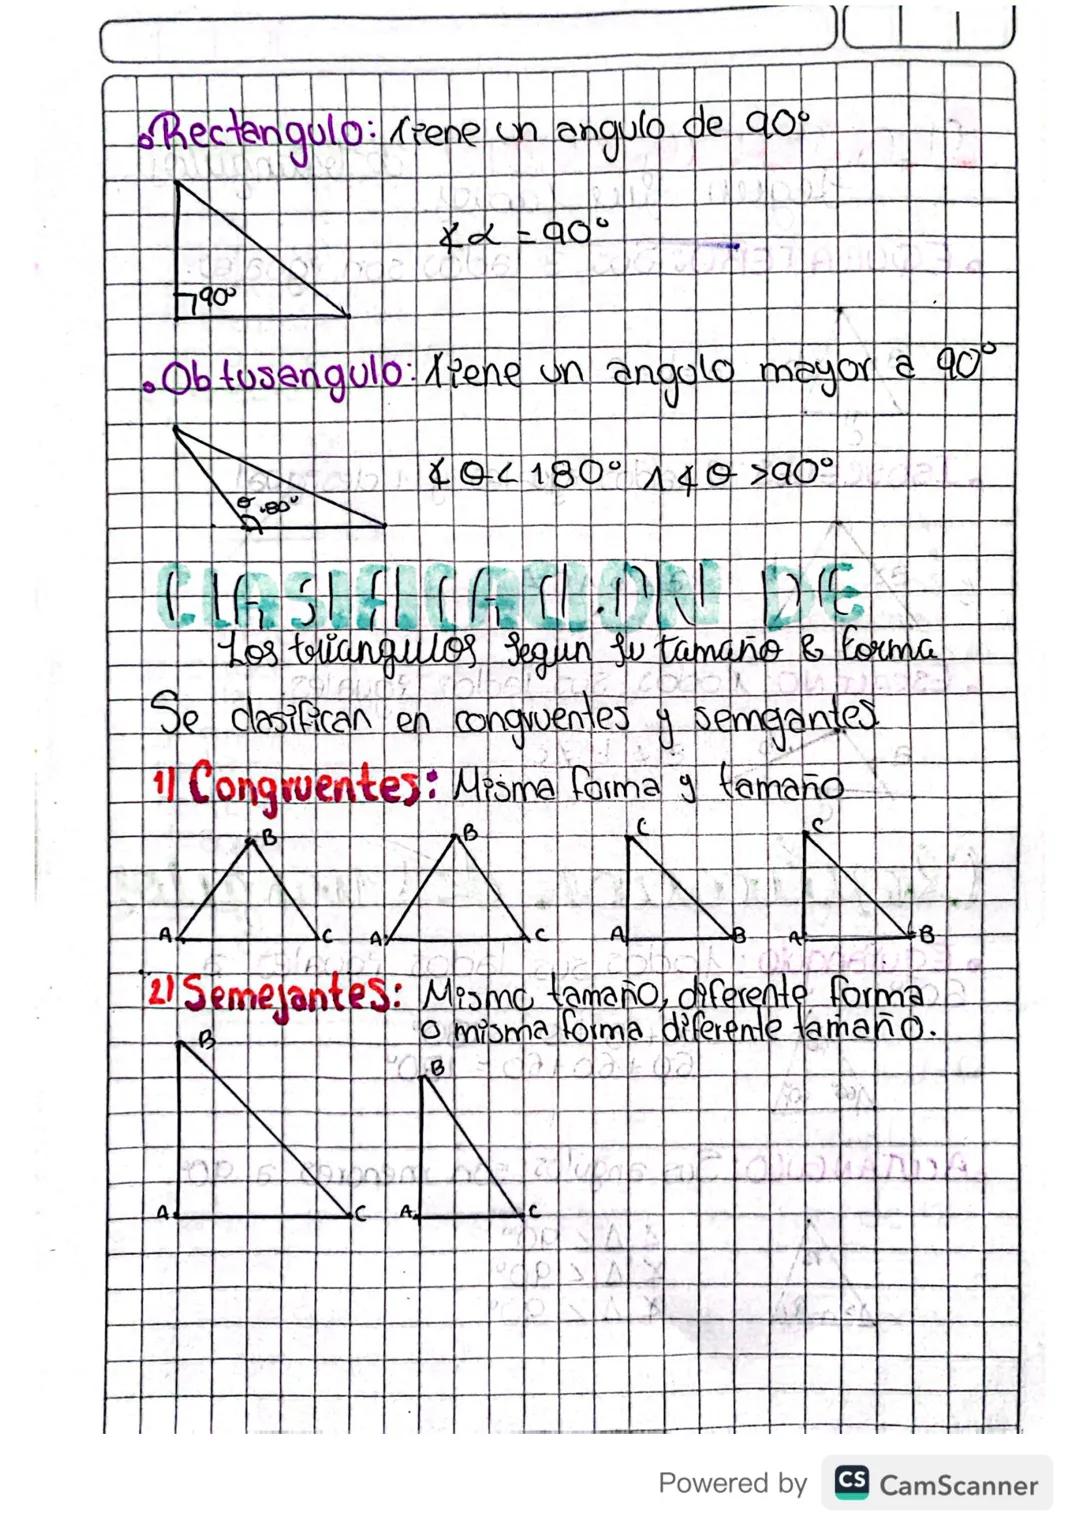 Rectangulo: tiene un angulo de 90°
∡α = 90°
90°
Obtusangulo: tiene un angulo mayor a 90°
∡θ < 180° ∧ ∡θ > 90°
θ
CLASIFICACION DE
Los triangulos segun su tamaño & forma
Se clasifican en congruentes y semgantes
1) Congruentes: Misma forma y tamaño
B B C C
A C A C A B A B
2) Semejantes: Mismo tamaño, diferente forma
o misma forma diferente tamaño.
B B
A C A C
Powered by CS CamScanner